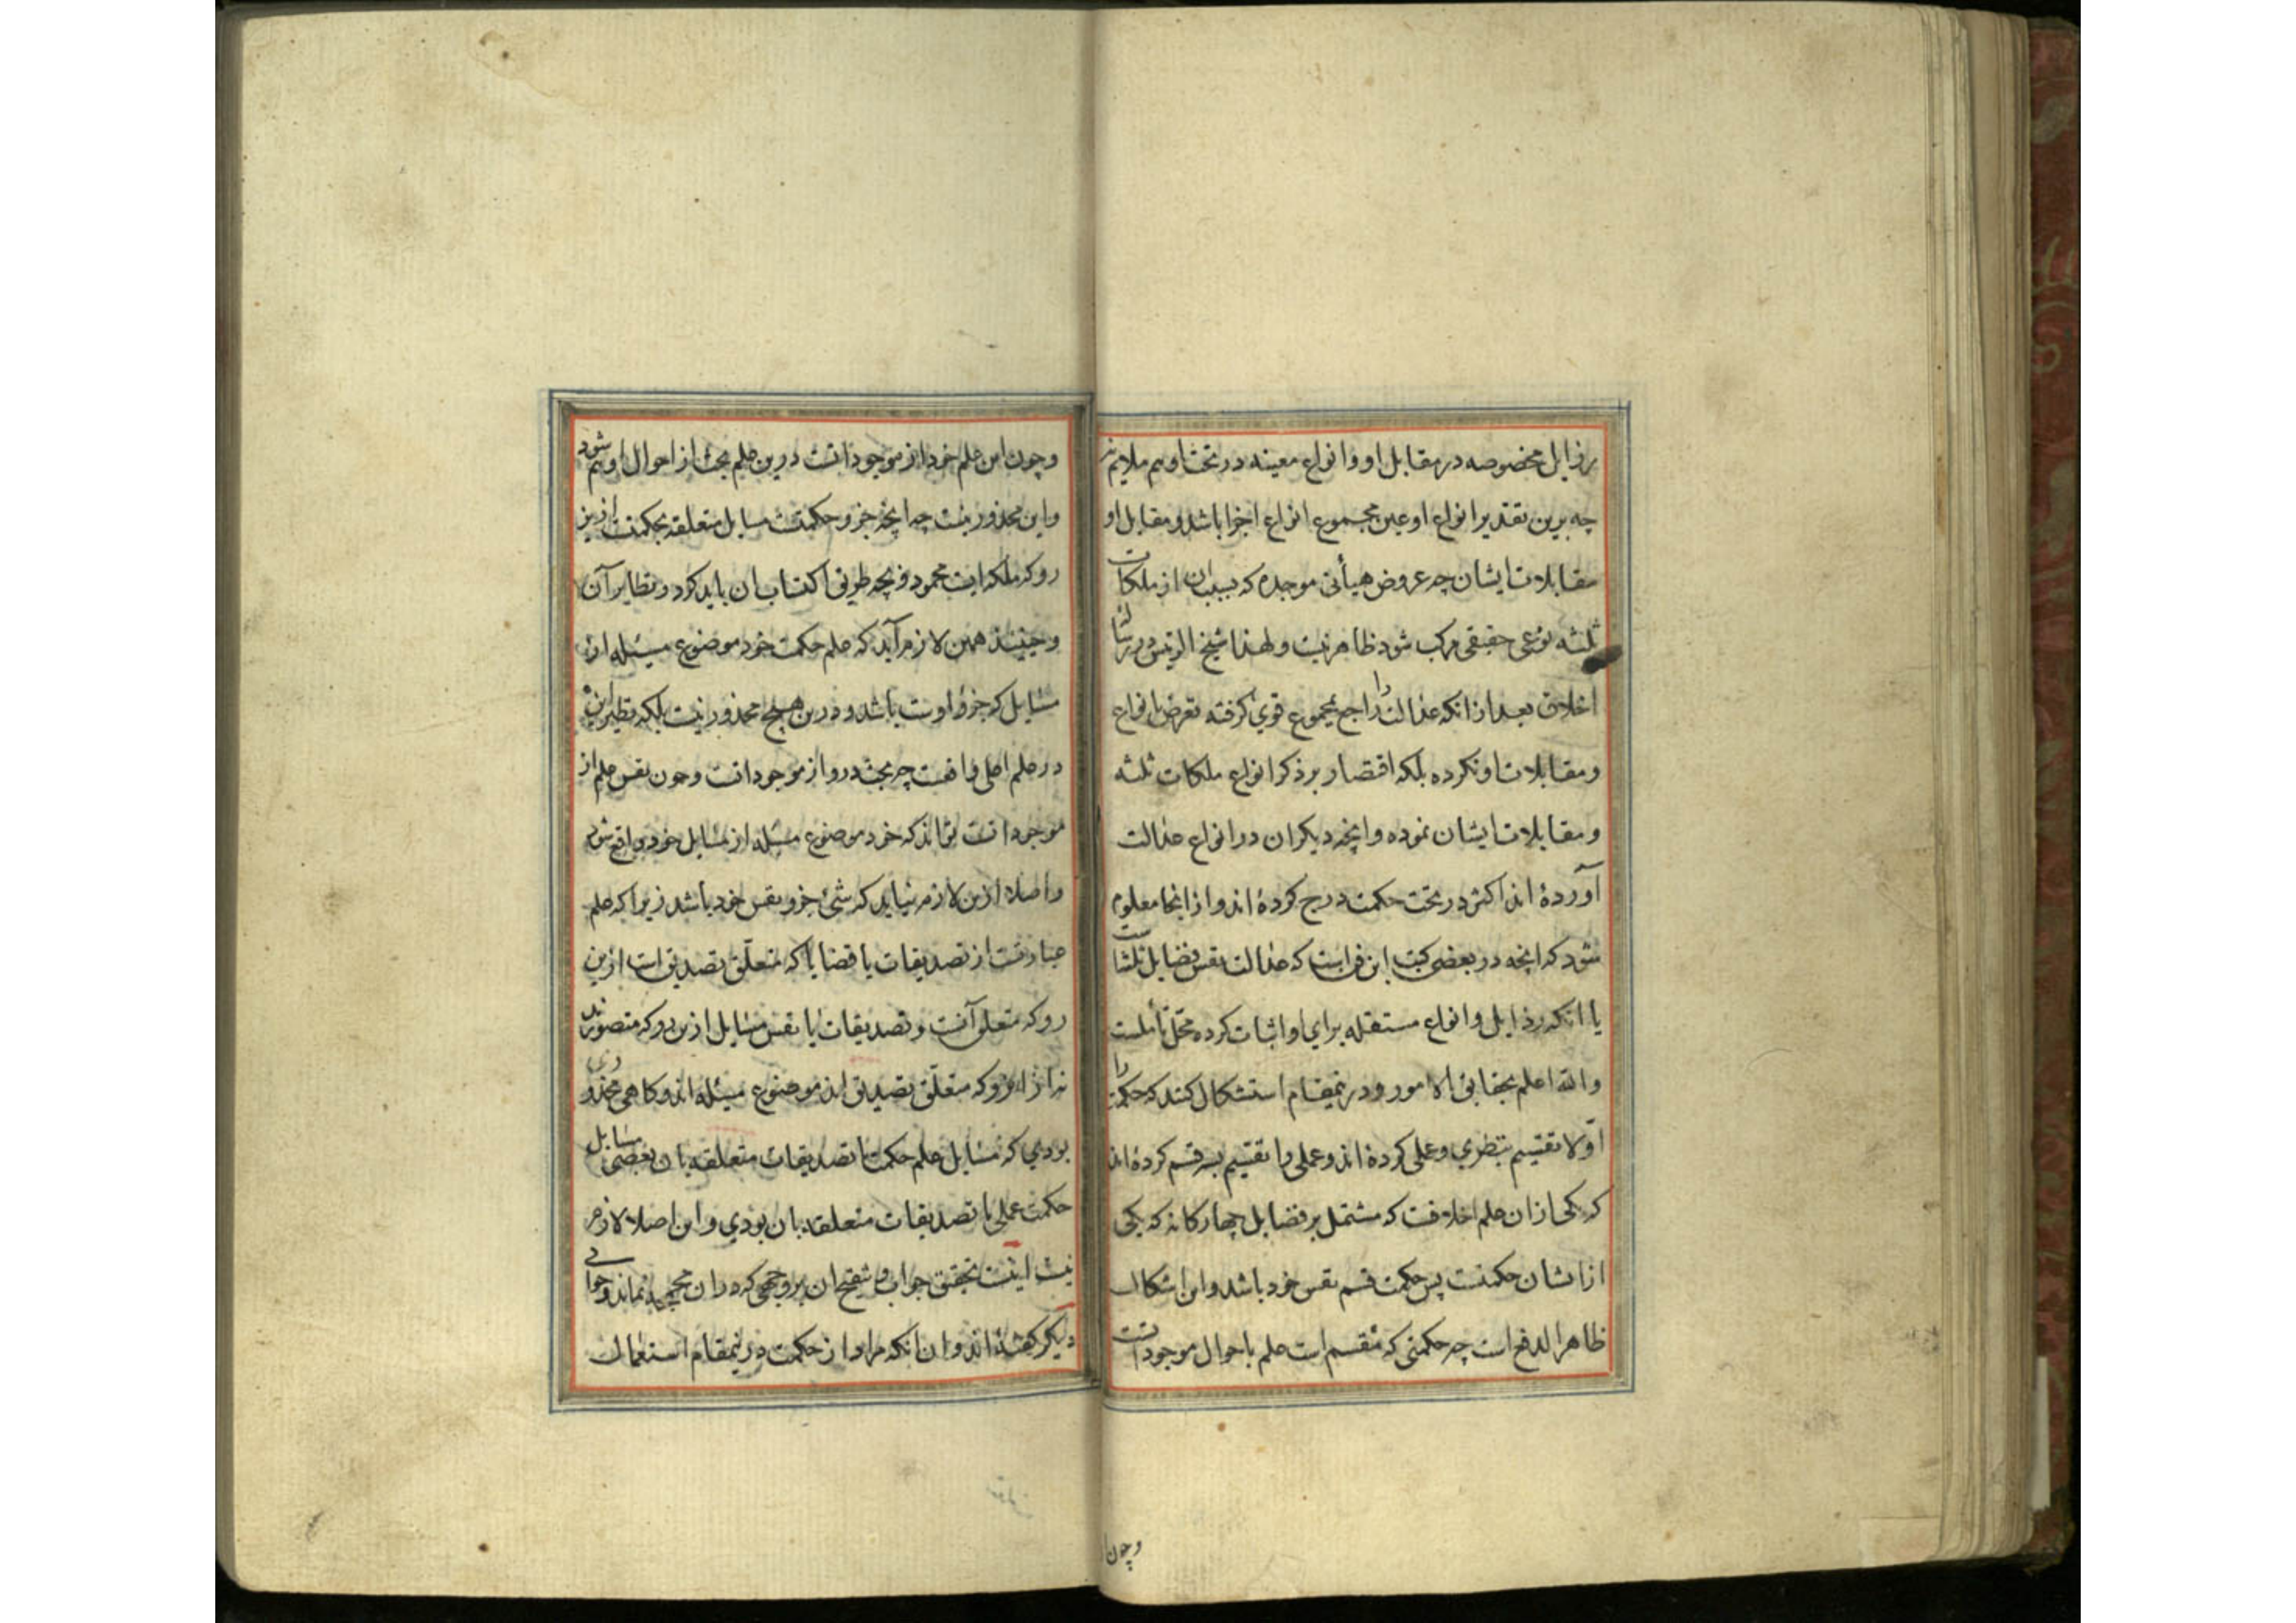 رذایل مخصوصه در مقابل او و انواع معینه در تحت او هم ملایم
چه برین تقدیر انواع او عین مجموع انواع اجزا باشد و مقابل او
مقابلات ایشان چه عروض هیأتی موجده که بسبب ان از ملکات
ثلثه نوعی حقیقی مرکب شود ظاهر نیست و لهذا شیخ الرئیس در رساله
اخلاق بعد از انکه عدالت را راجع بمجموع قوی کرفته تعرض بانواع
و مقابلات او نکرده بلکه اقتصار بر ذکر انواع ملکات ثلثه
و مقابلات ایشان نموده و انچه دیکران در انواع عدالت
آورده اند اکثر در تحت حکمت درج کرده اند و از اینجا معلوم
شود که انچه در بعضی کتب این فن است که عدالت نفس فضایل ثلثه است
یا انکه رذایل و انواع مستقله برای او اثبات کرده محل تأملست
والله اعلم بحقایق الامور و درینمقام استشکال کنند که حکمت را
اولا تقسیم بنظری و عملی کرده اند و عملی را تقسیم بسه قسم کرده اند
که یکی ازان علم اخلاقست که مشتمل بر فضایل چهارکانه که یکی
از ایشان حکمتست پس حکمت قسم نفس خود باشد و این اشکال
ظاهر الدفع است چه حکمتی که منقسم است علم باحوال موجوداتست
وچون ا
وچون این علم خود از موجوداتست درین علم بحث از احوال او هم شود
و این محذور نیست چه انچه جزو حکمتست مسایل متعلقه بحکمتست ازین
رو که ملکه ایست محمود و بچه طریق اکتساب ان باید کرد و نظایر آن
و حینئذ همین لازم آید که علم حکمت خود موضوع مسئله از
مسایل که جزو اوست باشد و درین هیچ محذور نیست بلکه نظیر این
در علم اعلی واقعست چه بحث درو از موجوداتست وچون نفس علم از
موجوداتست تواند که خود موضوع مسئله از مسایل خود واقع شود
و اصلا ازین لازم نیاید که شیٔ جزو نفس خود باشد زیرا که علم
عبارتست از تصدیقات یا قضایا که متعلق تصدیق است ازین
رو که متعلق آنست و تصدیقات یا نفس مسایل ازین رو که متصورند
نه از انرو که متعلق تصدیق اند موضوع مسئله اند و کاهی محذوری
بودی که مسایل علم حکمت یا تصدیقات متعلقه بان بعضی مسایل
حکمت عملی یا تصدیقات متعلقه بان بودی و این اصلا لازم
نیست اینست تحقیق جواب و تنقیح ان بروجهی که دران نماند و جوابی
دیکر کفته اند و ان انکه مراد از حکمت درینمقام استعمال